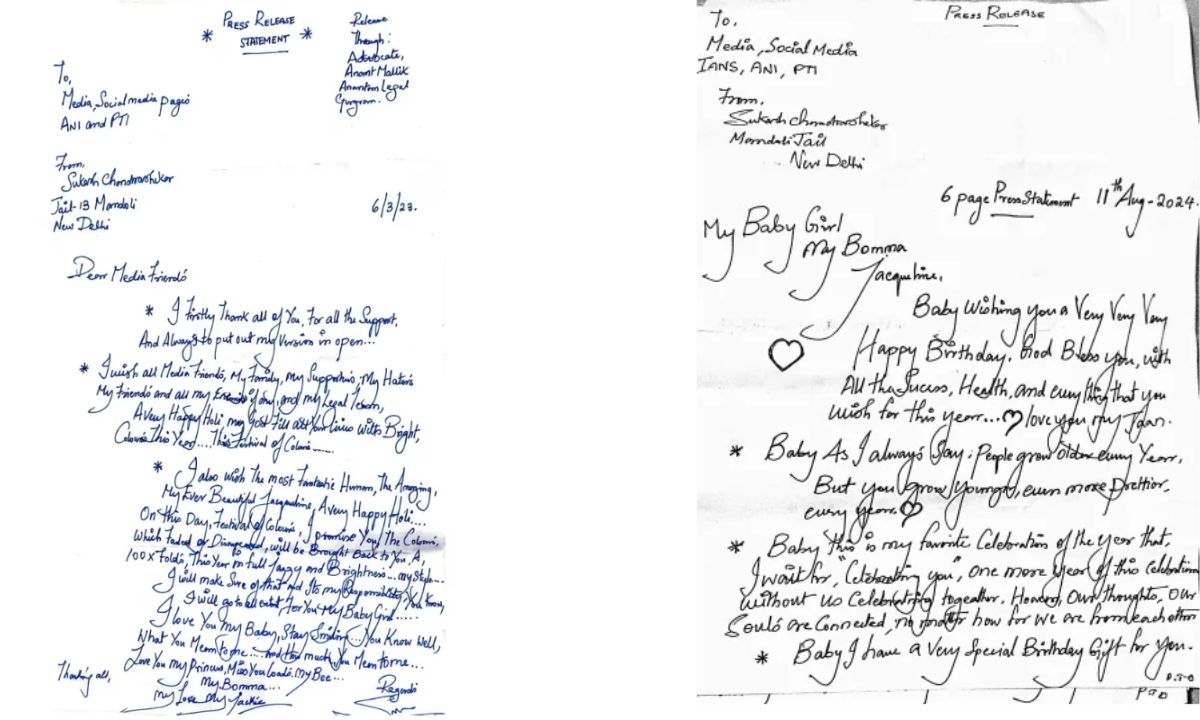 PRESS RELEASE
* STATEMENT *
Release
Through:
Advocate,
Anant Mallik
Anantam Legal
Gurgram.
To,
Media, Social media pages
ANI and PTI
From,
Sukash Chandrashekar
Jail-13 Mandoli
New Delhi
6/3/23.
Dear Media Friends
* I Firstly Thank all of You, For all the Support,
And Always to put out my Version in open...
* I wish all Media Friends, My Family, my Supporters, My Haters
My Friends and all my Enemies if any, and my Legal Team,
A very Happy Holi may God Fill all Your Lives With Bright,
Colours This Year.... This Festival of Colours......
* I also wish The most Fantastic Human, The Amazing,
My Ever Beautiful Jacqueline, A very Happy Holi...
On this Day, Festival of Colours, I promise You, The Colours,
Which Faded or Disappeared, will be Brought Back to You, A,
100 x Folds, This Year in full Jazzy and Brightness... my Style...
I will make Sure of that and Its my Responsibility, You Know,
I will go to all extent For You My Baby Girl.....
I Love You My Baby, Stay Smiling... You Know Well,
What You Mean to me... and How much You Mean to me...
Love You my Princess, Miss You Loads. My Bee...
My Bomma...
My Love My Jackie
Thanking all,
Regards
PRESS RELEASE
To,
Media, Social Media
IANS, ANI, PTI
From,
Sukash Chandrashekar
Mandoli Jail
New Delhi
6 page Press Statement 11th Aug-2024.
My Baby Girl
My Bomma
Jacqueline,
Baby Wishing you a Very Very Very
Happy Birthday. God Bless you, with
All the Sucess, Health, and everything that you
wish for this year...♡ love you my Jaan.
* Baby As I always Say: People grow Older every Year,
But you grow Younger, even more Prettier,
every year.♡
* Baby This is my favorite Celebration of the year that,
I wait for, "Celebrating you", One more Year of this Celebration
Without us Celebrating togeather. However, Our thoughts, Our
Souls are Connected, no matter how far we are from each other
* Baby I have a Very Special Birthday Gift for you.
P.T.O
PTO